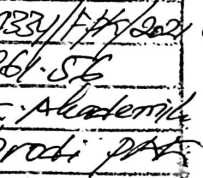 1334/FHK/2021
261.56
. Akademik
Prodi PAK